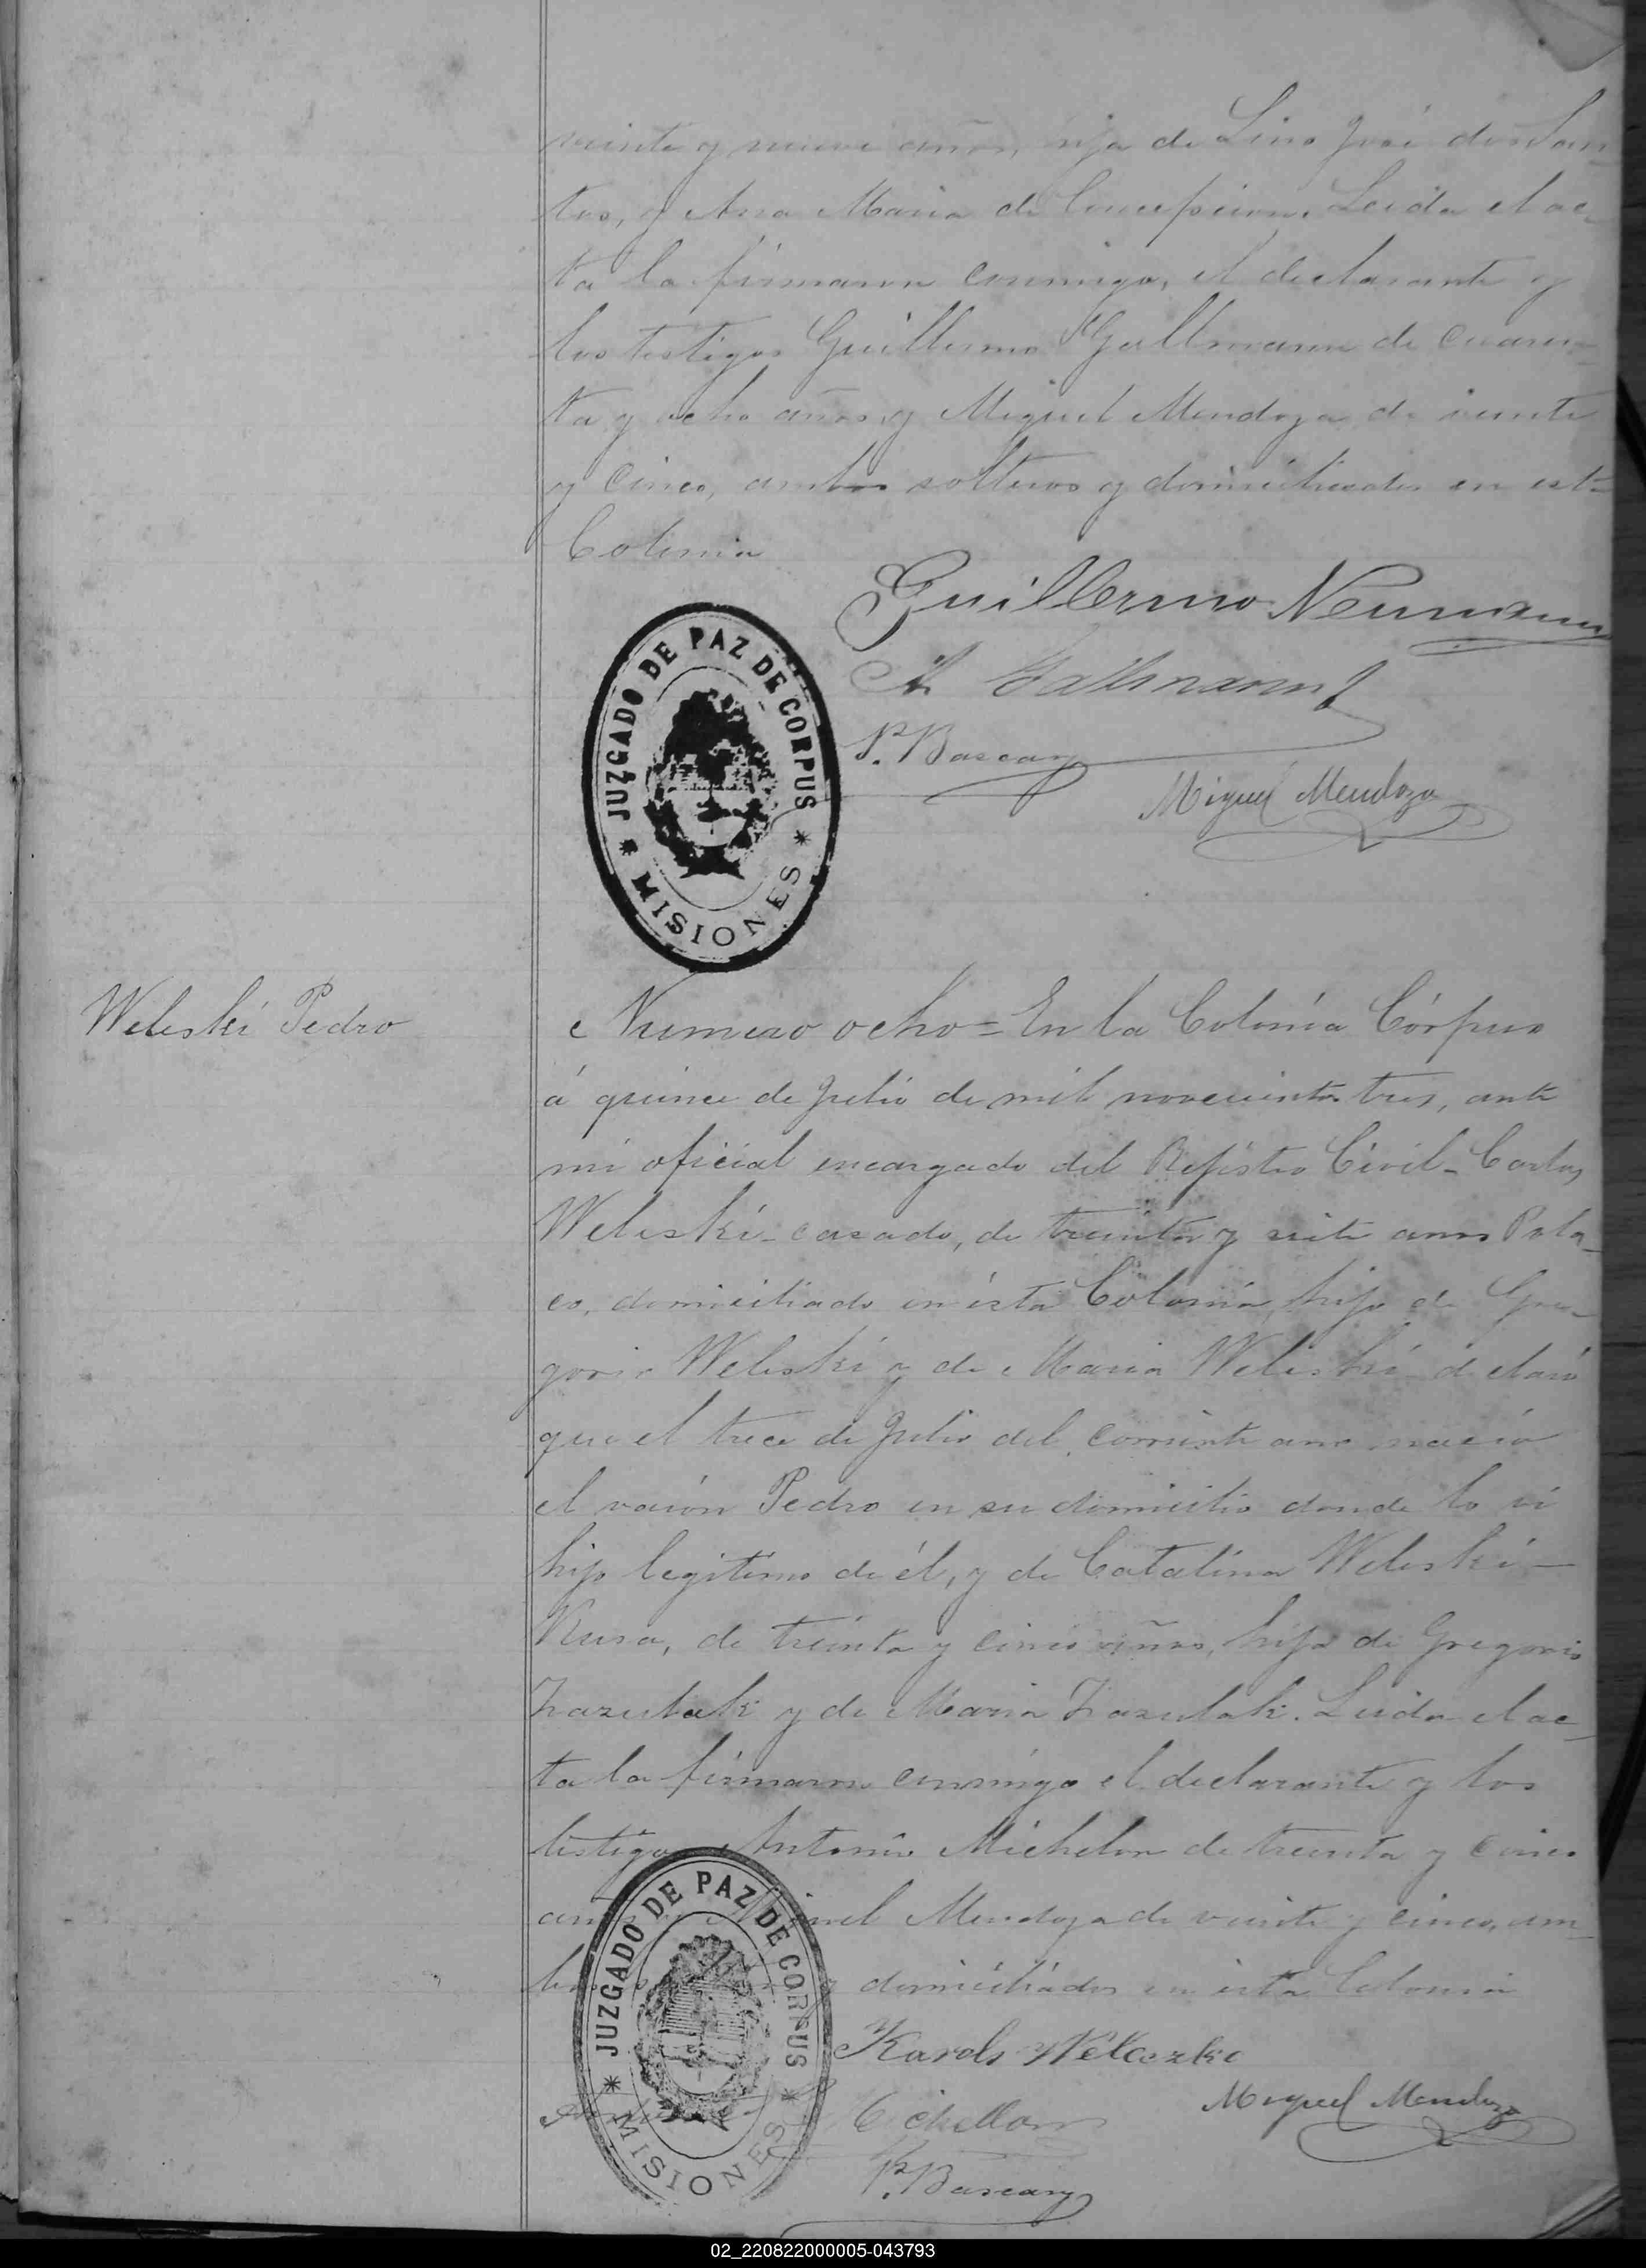 veinte y nueve años, hija de Lino José dos San-
tos, y Ana Maria de Concepcion. Leida el ac-
ta la firmaron conmigo, el declarante y
los testigos Guillermo Gallmann de cuaren-
ta y ocho años, y Miguel Mendoza de veinte
y cinco, ambos solteros y domiciliados en esta
Colonia
Guillermo Neumann
Gallmann
P. Bascary
Miguel Mendoza
JUZGADO DE PAZ DE CORPUS
* MISIONES *
Weleski Pedro
Numero ocho = En la Colonia Córpus
á quince de Julio de mil novecientos tres, ante
mi oficial encargado del Rejistro Civil - Carlos
Weleski - casado, de treinta y siete anos Pola-
co, domiciliado en ésta Colonia, hijo de Gre-
gorio Weleski y de Maria Weleski declaró
que el trece de Julio del corriente ano nació
el varón Pedro en su domicilio donde lo ví
hijo legitimo de él, y de Catalina Weleski -
Rusa, de treinta y cinco años, hija de Gregorio
Lazulak y de Maria Lazulak. Leida el ac-
ta la firmaron conmigo el declarante y los
testigos Antonio Michelon de treinta y cinco
Mendoza de veinte y cinco, am-
y domiciliados en ésta Colonia
Karols Weleczki
Miguel Mendoza
P. Bascary
JUZGADO DE PAZ DE CORPUS
* MISIONES *
02_220822000005-043793